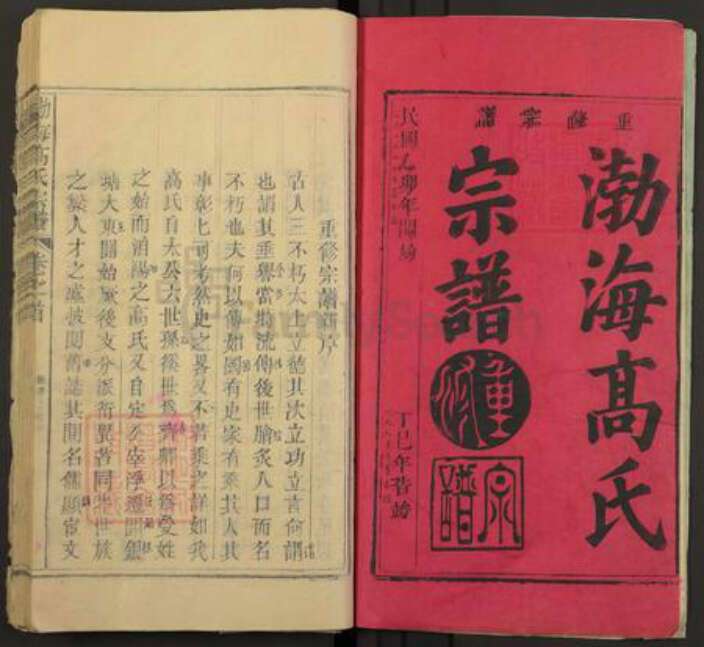 重修宗譜
渤海高氏
宗譜
重修
宗譜
民國乙卯年開編
丁巳年告竣
重修宗譜新序
古人三不朽太上立德其次立功立言何謂
也謂其垂譽當時流傳後世膾炙人口而名
不朽也夫何以傳如國有史家有乘其人其
事彰彰可考然史之畧又不若乘之詳如我
高氏自太公六世孫傒世為齊卿以為受姓
之始而
之高氏又自定公宰浮梁
大東開始厥後支分派衍
同
世族
之繁人才之盛披閱舊誌其間名儒顯宦文
渤海高氏宗譜
卷之首